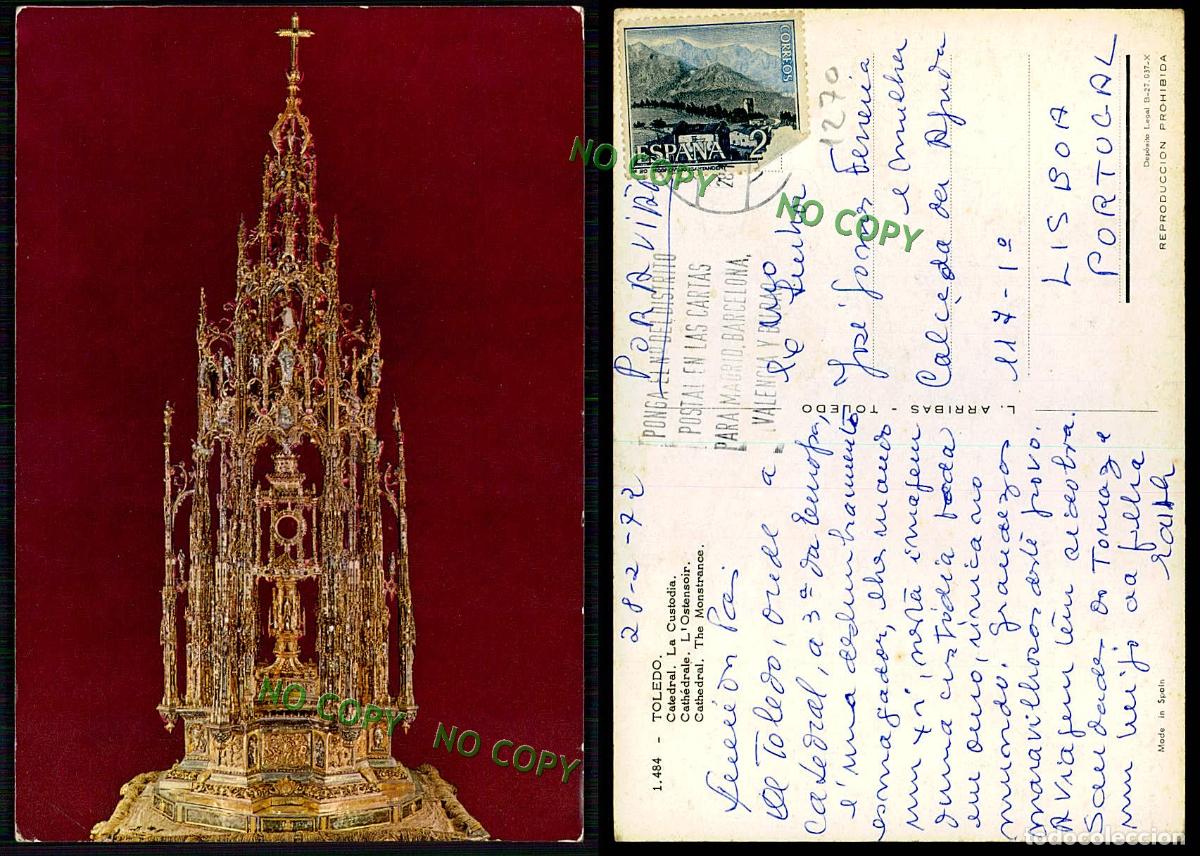 NO COPY
NO COPY
1.484 - TOLEDO.
Catedral. La Custodia.
Cathédrale. L'Ostensoir.
Cathedral. The Monstrance.
28-2-72
Pai
de Toledo, onde a
Catedral, a 3ª da Europa,
é uma deslumbramento
esmagador, lhe mando
nesta imagem
duma custódia toda
em ouro, única no
mundo, grandezas
maravilhosas deste povo.
A viagem tem sido obra.
Saudades do Tomaz e
um beijo da filha
Made in Spain
L. ARRIBAS - TOLEDO
POR AVIÃO
CORREOS
ESPAÑA 2
NO COPY
NO COPY
PONGA EL Nº DEL DISTRITO
POSTAL EN LAS CARTAS
PARA MADRID, BARCELONA,
VALENCIA Y BILBAO
1270
José Gomes Ferreia
e mulher
Calçada da Ajuda
117-1º
LISBOA
PORTUGAL
Depósito Legal B-27.037-X
REPRODUCCION PROHIBIDA
todocoleccion